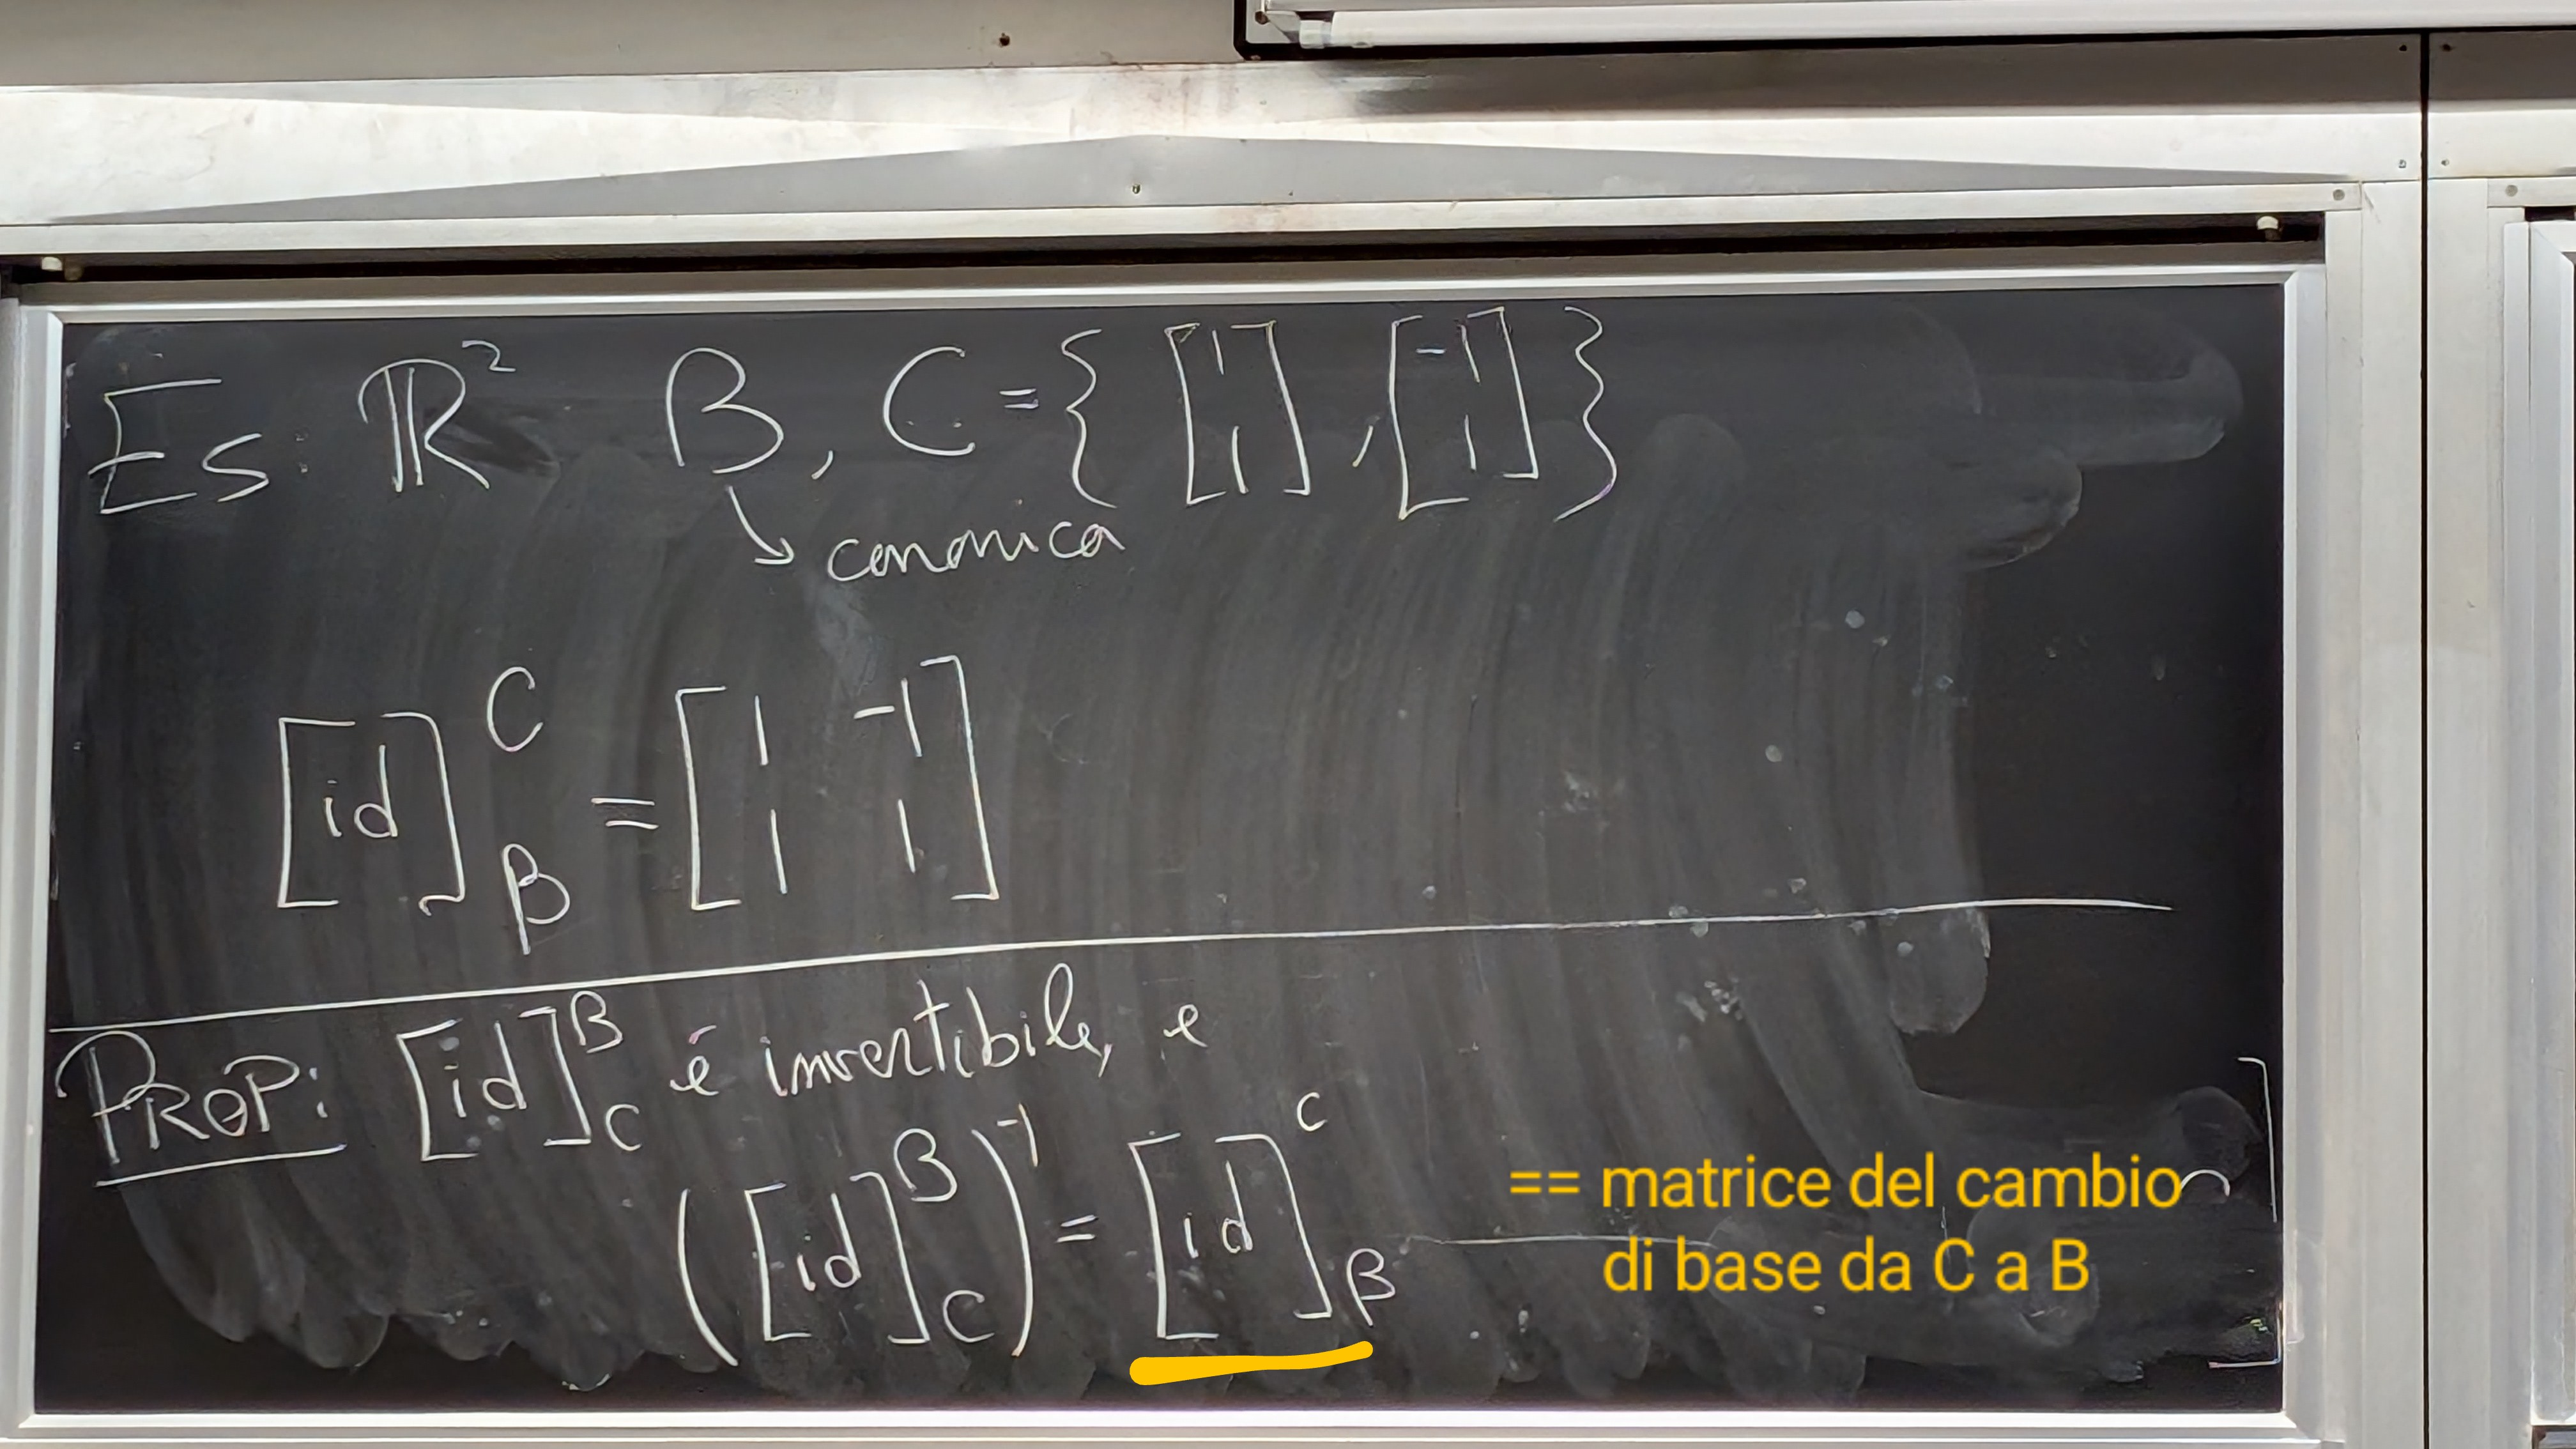 Es: ℝ² B, C = { [1 1], [-1 1] }
↘ canonica
[id]^C_B = [1 -1
1 1]
PROP: [id]^B_C é invertibile, e
([id]^B_C)^-1 = [id]^C_B
== matrice del cambio
di base da C a B